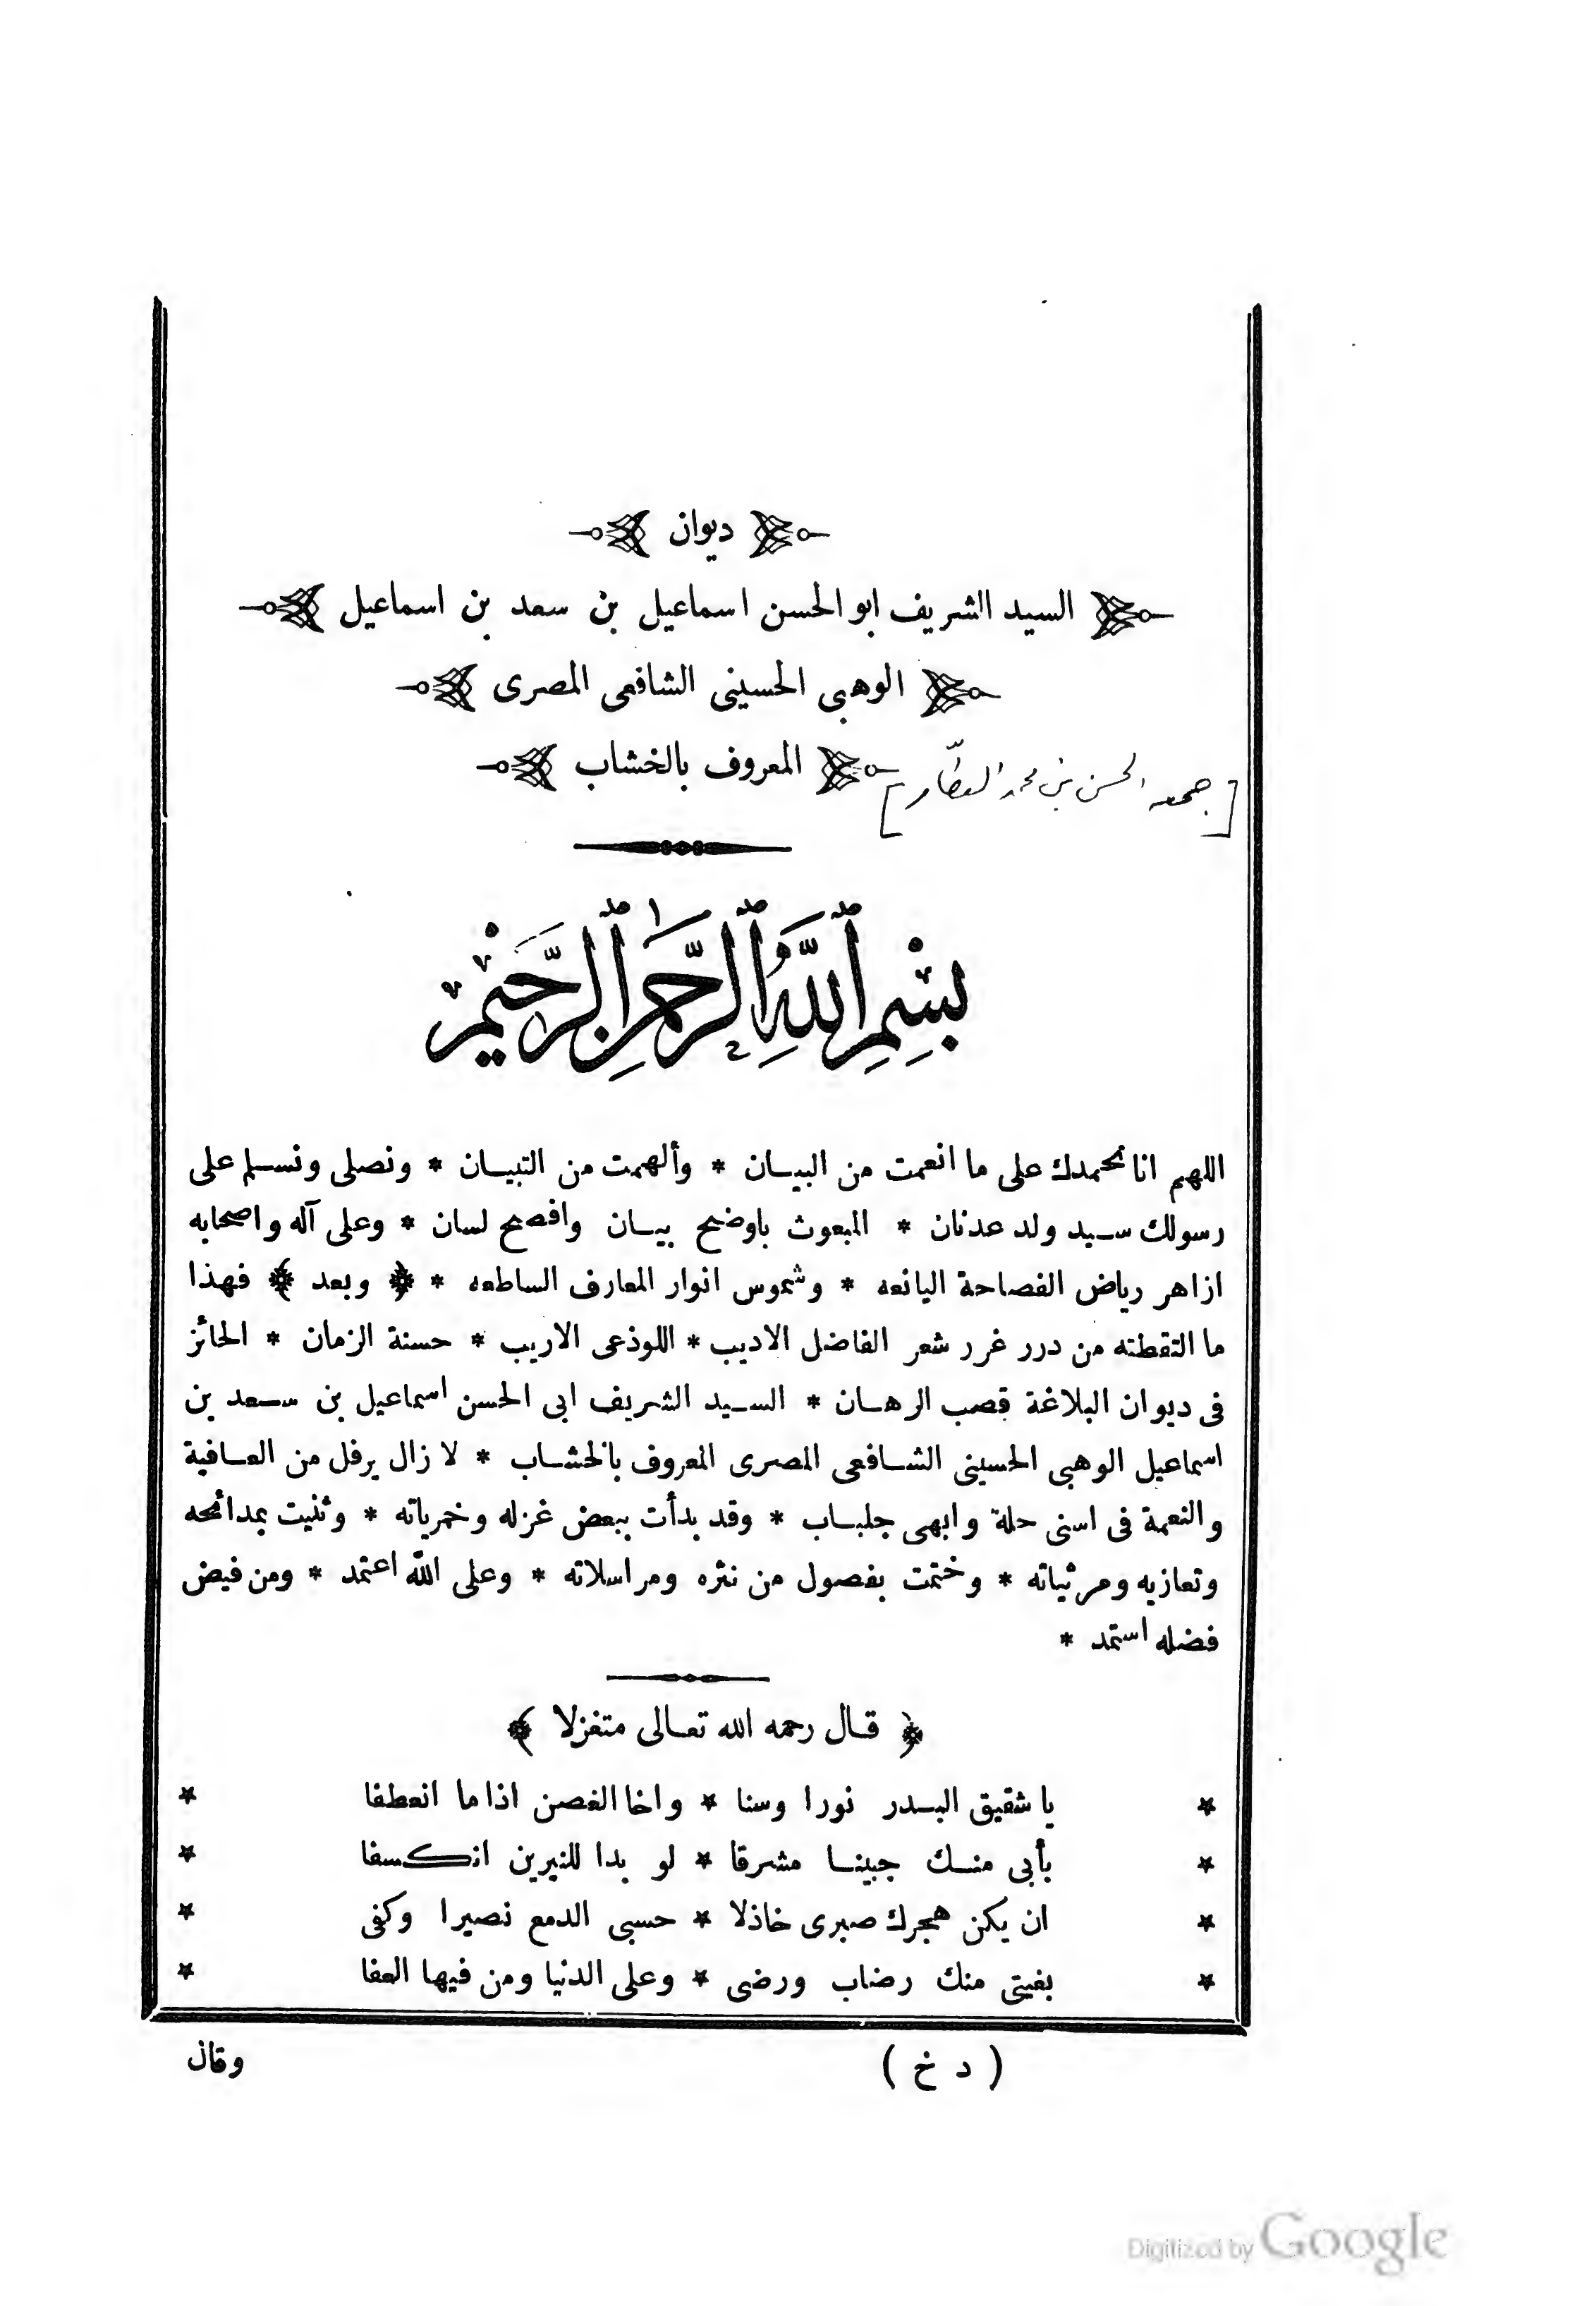 ديوان
السيد الشريف ابو الحسن اسماعيل بن سعد بن اسماعيل
الوهبى الحسينى الشافعى المصرى
المعروف بالخشاب
[جمعه الحسن بن محمد العطّار]
بِسْمِ ٱللَّهِ ٱلرَّحْمٰنِ ٱلرَّحِيْمِ
اللهم انا نحمدك على ما انعمت من البيـان * وألهمت من التبيـان * ونصلى ونسلم على
رسولك سـيد ولد عدنان * المبعوث باوضح بيـان وافصح لسان * وعلى آله واصحابه
ازاهر رياض الفصاحة اليانعه * وشموس انوار المعارف الساطعه * ﴿ وبعد ﴾ فهذا
ما التقطته من درر غرر شعر الفاضل الاديب * اللوذعى الاريب * حسنة الزمان * الحائز
فى ديوان البلاغة قصب الرهـان * السـيد الشريف ابى الحسن اسماعيل بن سـعد بن
اسماعيل الوهبى الحسينى الشـافعى المصرى المعروف بالخشـاب * لا زال يرفل من العـافية
والنعمة فى اسنى حلة وابهى جلبـاب * وقد بدأت ببعض غزله وخمرياته * وثنيت بمدائحه
وتعازيه ومرثياته * وختمت بفصول من نثره ومراسلاته * وعلى الله اعتمد * ومن فيض
فضله استمد *
﴿ قـال رحمه الله تعـالى متغزلا ﴾
* يا شقيق البـدر نورا وسنا * واخا الغصن اذا ما انعطفا *
* بأبى منـك جبينـا مشرقا * لو بدا للنيرين انكسفا *
* ان يكن هجرك صبرى خاذلا * حسبى الدمع نصيرا وكفى *
* بغيتى منك رضاب ورضى * وعلى الدنيا ومن فيها العفا *
( د خ )
وقال
Digitized by Google